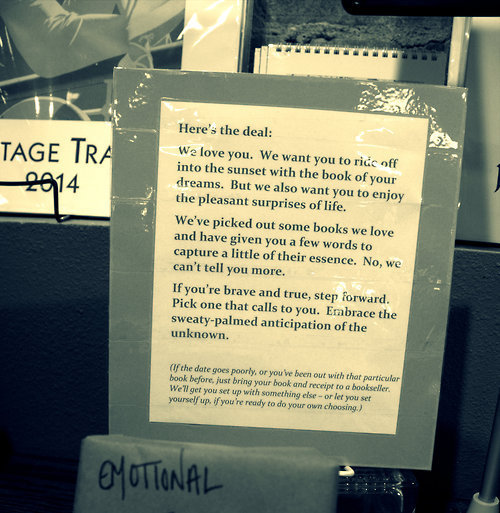 TAGE TRA
2014
Here's the deal:
We love you. We want you to ride off
into the sunset with the book of your
dreams. But we also want you to enjoy
the pleasant surprises of life.
We've picked out some books we love
and have given you a few words to
capture a little of their essence. No, we
can't tell you more.
If you're brave and true, step forward.
Pick one that calls to you. Embrace the
sweaty-palmed anticipation of the
unknown.
(If the date goes poorly, or you've been out with that particular
book before, just bring your book and receipt to a bookseller.
We'll get you set up with something else – or let you set
yourself up, if you're ready to do your own choosing.)
EMOTIONAL